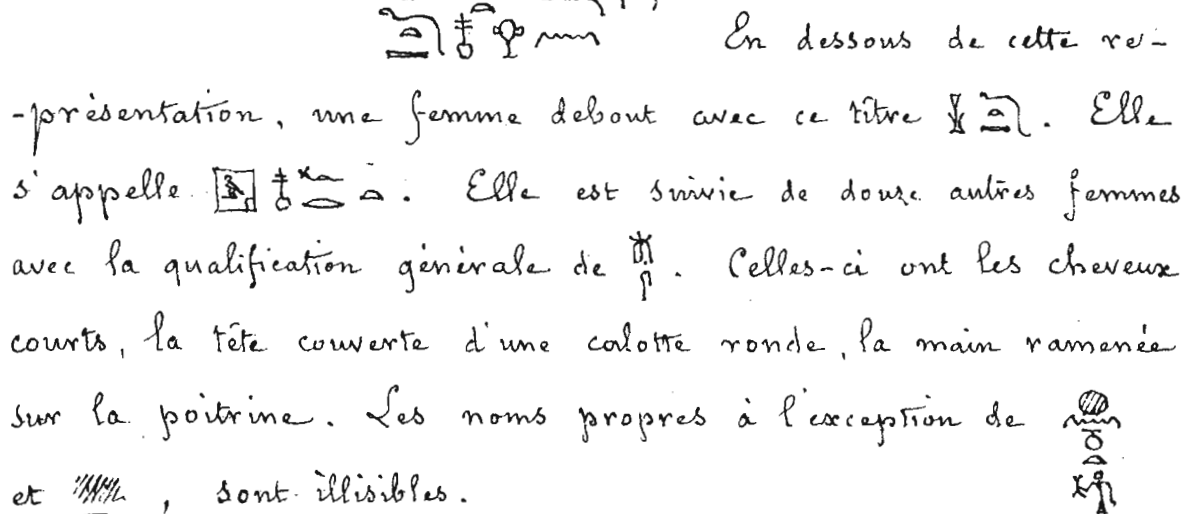 En dessous de cette re-
-présentation, une femme debout avec ce titre . Elle
s'appelle . Elle est suivie de douze autres femmes
avec la qualification générale de . Celles-ci ont les cheveux
courts, la tête couverte d'une calotte ronde, la main ramenée
sur la poitrine. Les noms propres à l'exception de
et , sont illisibles.